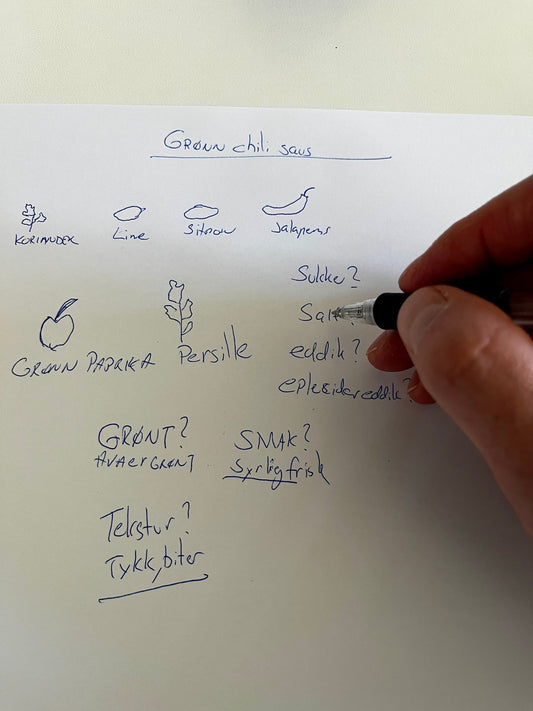 GRØNN chili saus
KORIANDER Lime Sitron Jalapenos
Sukker?
Salt?
GRØNN PAPRIKA Persille eddik?
eplesidereddik?
GRØNT? SMAK?
HVA ER GRØNT Syrlig frisk
Tekstur?
Tykk, biter